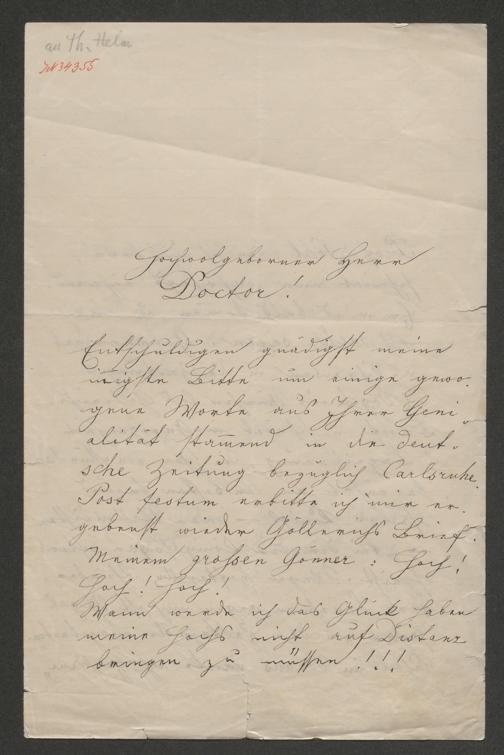 an Th. Helm
JN 34355
Hochwolgeborner Herr
Doctor!
Entschuldigen gnädigst meine
innigste Bitte um einige gewo-
gene Worte aus Ihrer Geni-
alität stam̅end in die deut-
sche Zeitung bezüglich Carlsruhe.
Post festum erbitte ich mir er-
gebenst wieder Göllerichs Brief.
Meinem großen Gönner: Hoch!
Hoch! Hoch!
Wann werde ich das Glück haben
meine Hochs nicht auf Distanz
bringen zu müssen!!!